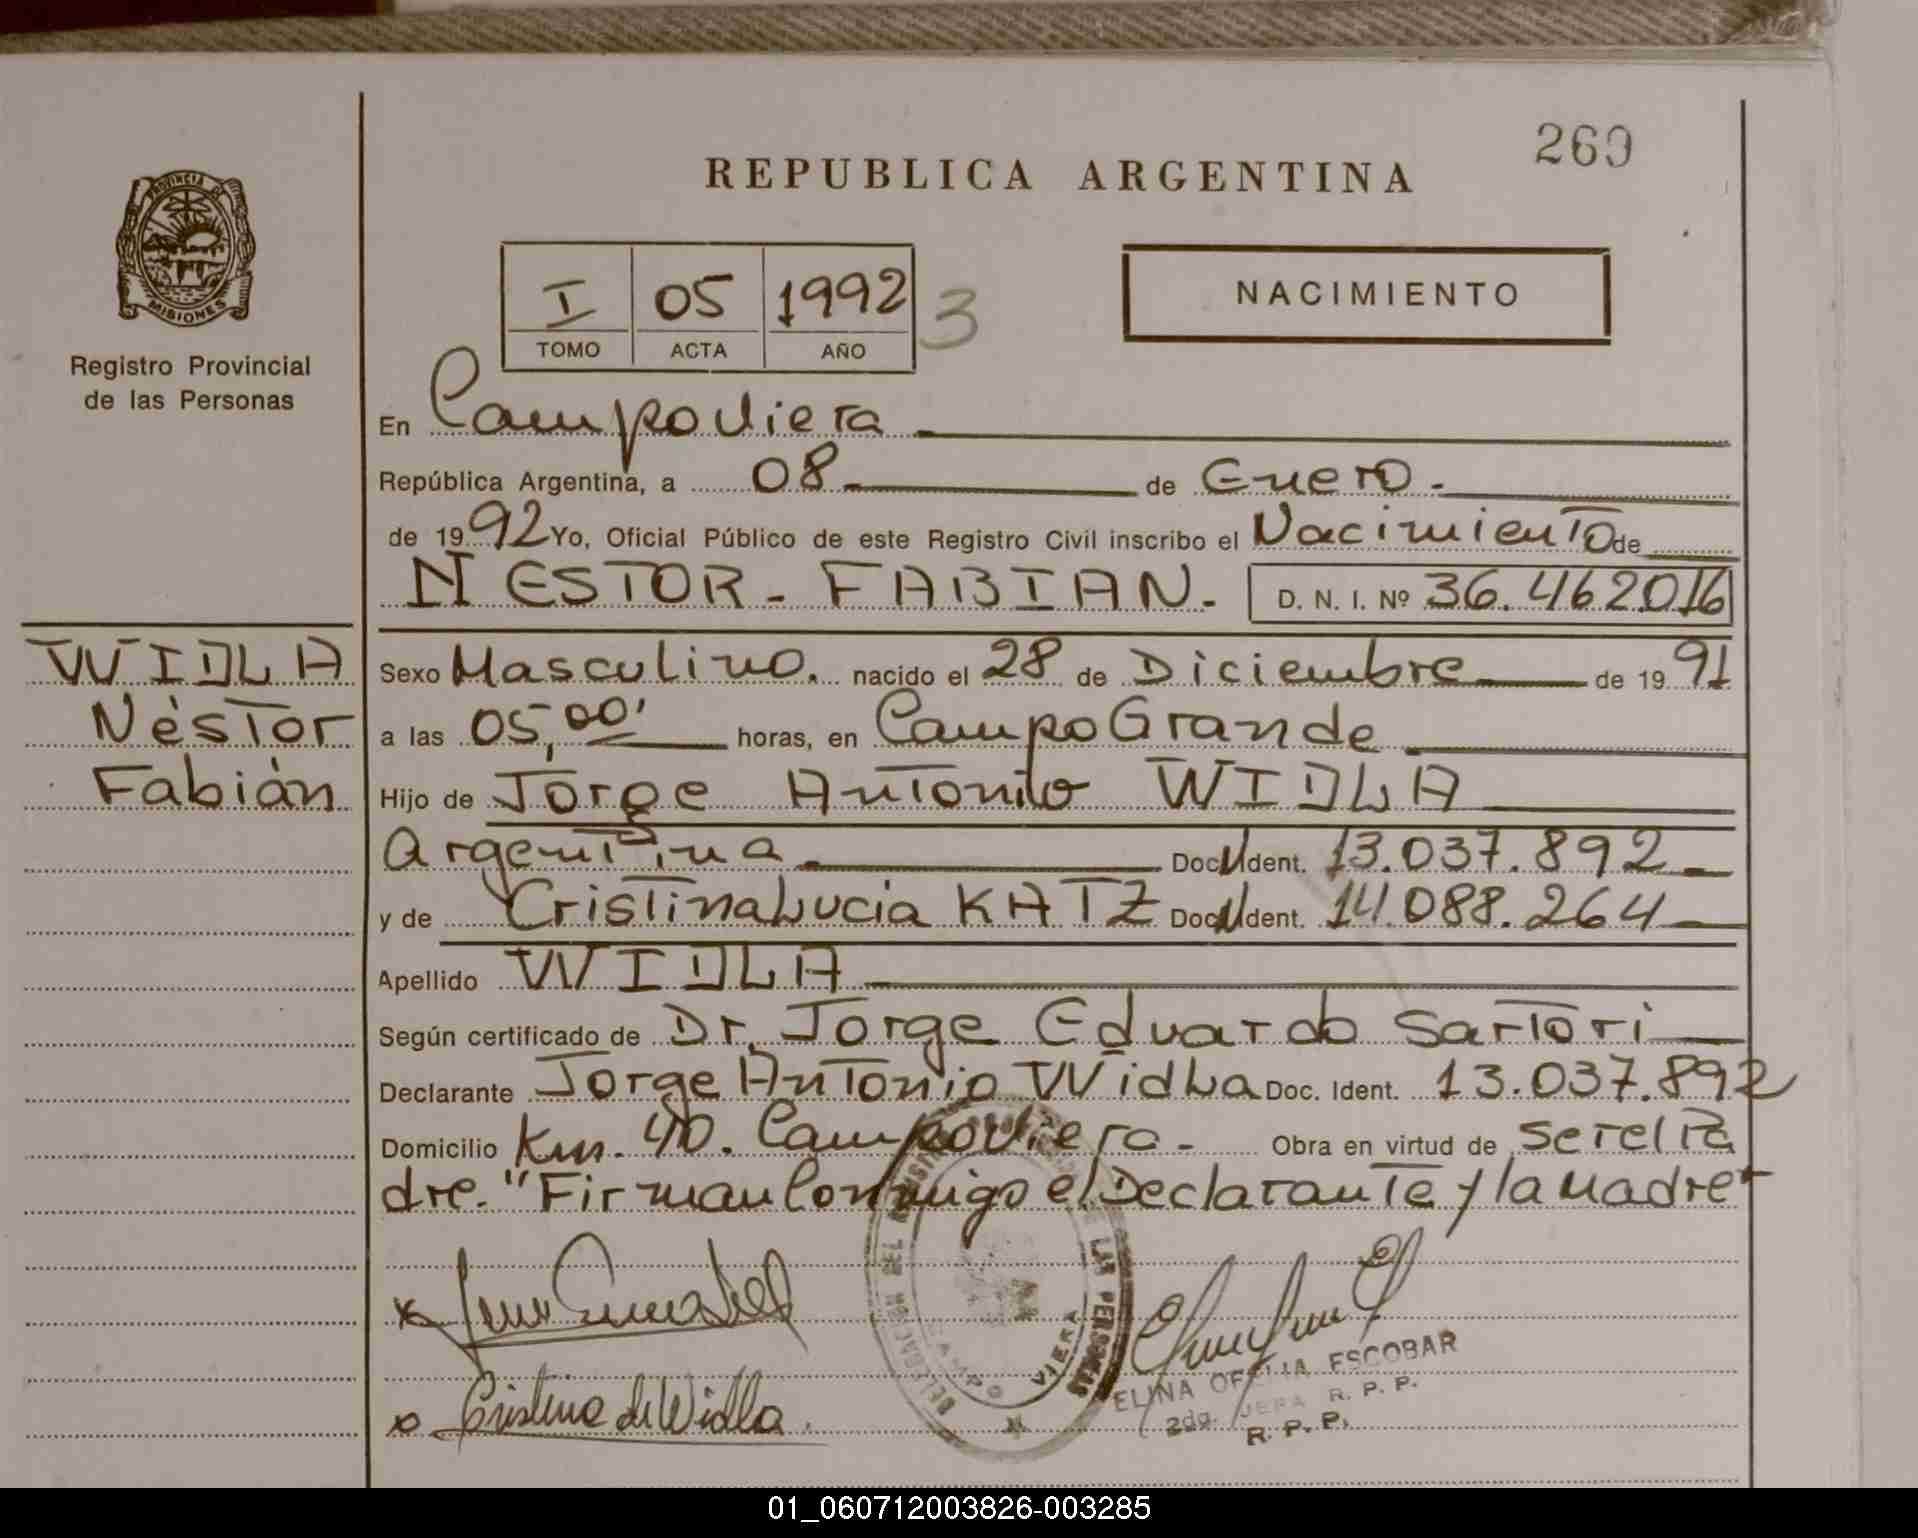 269
REPUBLICA ARGENTINA
PROVINCIA DE
MISIONES
Registro Provincial
de las Personas
I 05 1992 3
TOMO ACTA AÑO
NACIMIENTO
En Campo Viera
República Argentina, a 08 de Enero.
de 1992 Yo, Oficial Público de este Registro Civil inscribo el Nacimiento de
NESTOR - FABIAN. D. N. I. Nº 36.462.016
WIDLA
Néstor
Fabián
Sexo Masculino. nacido el 28 de Diciembre de 19 91
a las 05,00' horas, en Campo Grande
Hijo de Jorge Antonio WIDLA
Argentina Doc. Ident. 13.037.892
y de Cristina Lucia KATZ Doc. Ident. 14.088.264
Apellido WIDLA
Según certificado de Dr. Jorge Eduardo Sartori
Declarante Jorge Antonio Widla Doc. Ident. 13.037.892
Domicilio Km. 40. Campo Viera - Obra en virtud de ser el Pa
dre. "Firman Conmigo el Declarante y la Madre"
Cristina de Widla.
DELEGACION DEL REGISTRO DE LAS PERSONAS
CAMPO VIERA
ELINA OFELIA ESCOBAR
2da. JEFA R. P. P.
R. P. P.
01_060712003826-003285